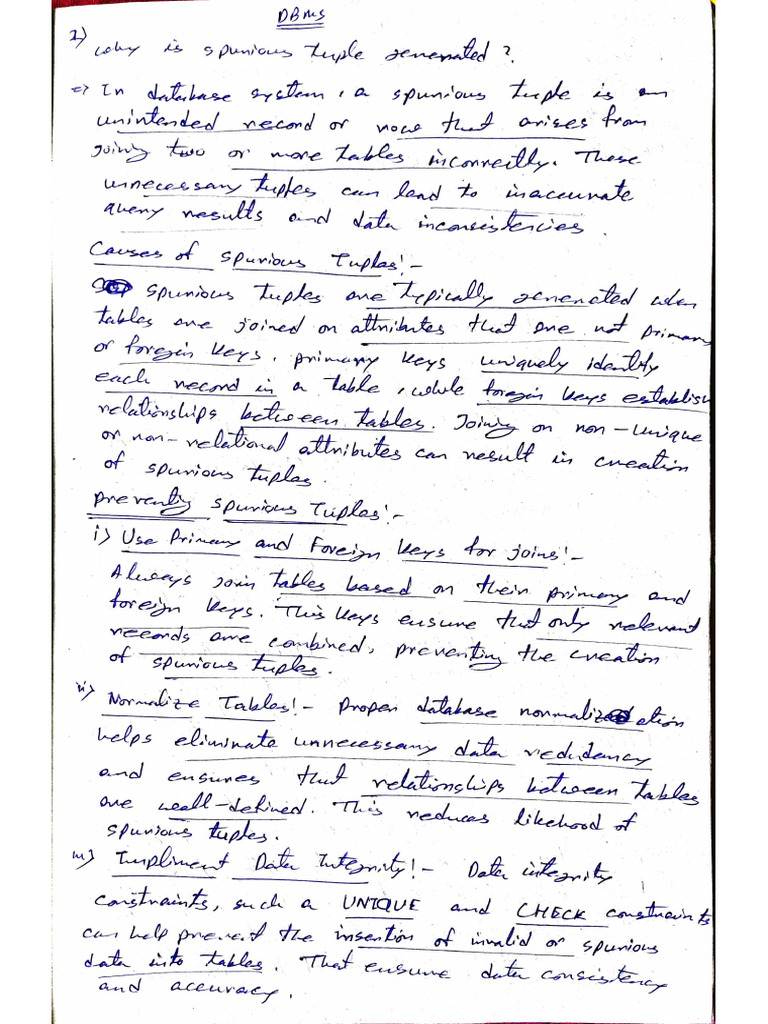 DBMS
1) Why is spunious tuple generated?
=> In database system, a spunious tuple is an
unintended record or rows that arises from
joining two or more tables incorrectly. These
unnecessary tuples can lead to inaccurate
query results and data inconsistencies.
Causes of Spunious Tuples!-
spunious tuples are typically generated when
tables are joined on attributes that are not primary
or foregin keys. primary keys uniquely identify
each record in a table, while foregin keys establish
relationships between tables. Joining on non-unique
or non-relational attributes can result in creation
of spunious tuples.
preventing spunious Tuples!-
i) Use Primary and Foreign Keys for joins!-
Always join tables based on their primary and
foreign keys. This keys ensure that only relevant
records are combined, preventing the creation
of spunious tuples.
ii) Normalize Tables!- Proper database normalization
helps eliminate unnecessary data redudancy
and ensures that relationships between tables
are well-defined. This reduces likehood of
spunious tuples.
iii) Impliment Data Integrity!- Data integrity
constraints, such a UNIQUE and CHECK constraints
can help prevent the insertion of invalid or spunious
data into tables. That ensure data consistency
and accuracy.